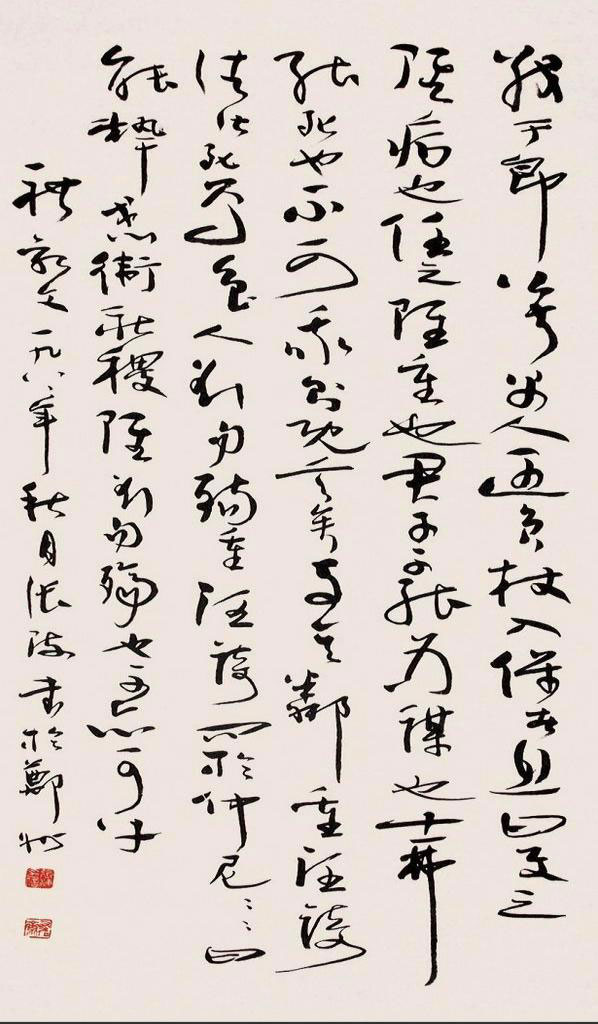 戰于郎公叔禺人遇負杖入保者息曰使之
雖病也任之雖重也君子不能為謀也士弗
能死也不可我則既言矣與其鄰重汪踦
往皆死焉魯人欲勿殤重汪踦問於仲尼々々曰
能執干戈以衛社稷雖欲勿殤也不亦可乎
禮記文一九八八年秋月張海書於鄭州